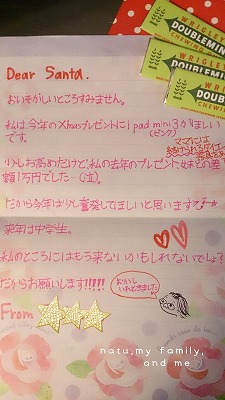 WRIGLEY'S
DOUBLEMINT
CHEWING GUM
DOUBLEMINT
DOUBLEMINT
Dear Santa.
おいそがしいところすみません。
私は今年のXmasプレゼントにipad mini3がほしい
(ピンク)
です。
ママには
少しお高めだけど、私の去年のプレゼント、妹との差
額1万円でした…(泣)。
だから今年は少し奮発してほしいと思います
来年は中学生。
私のところにはもう来ないかもしれないでしょ?
だからお願いします!!!!!
おかし
いれときました
From
hatu,my family,
and me